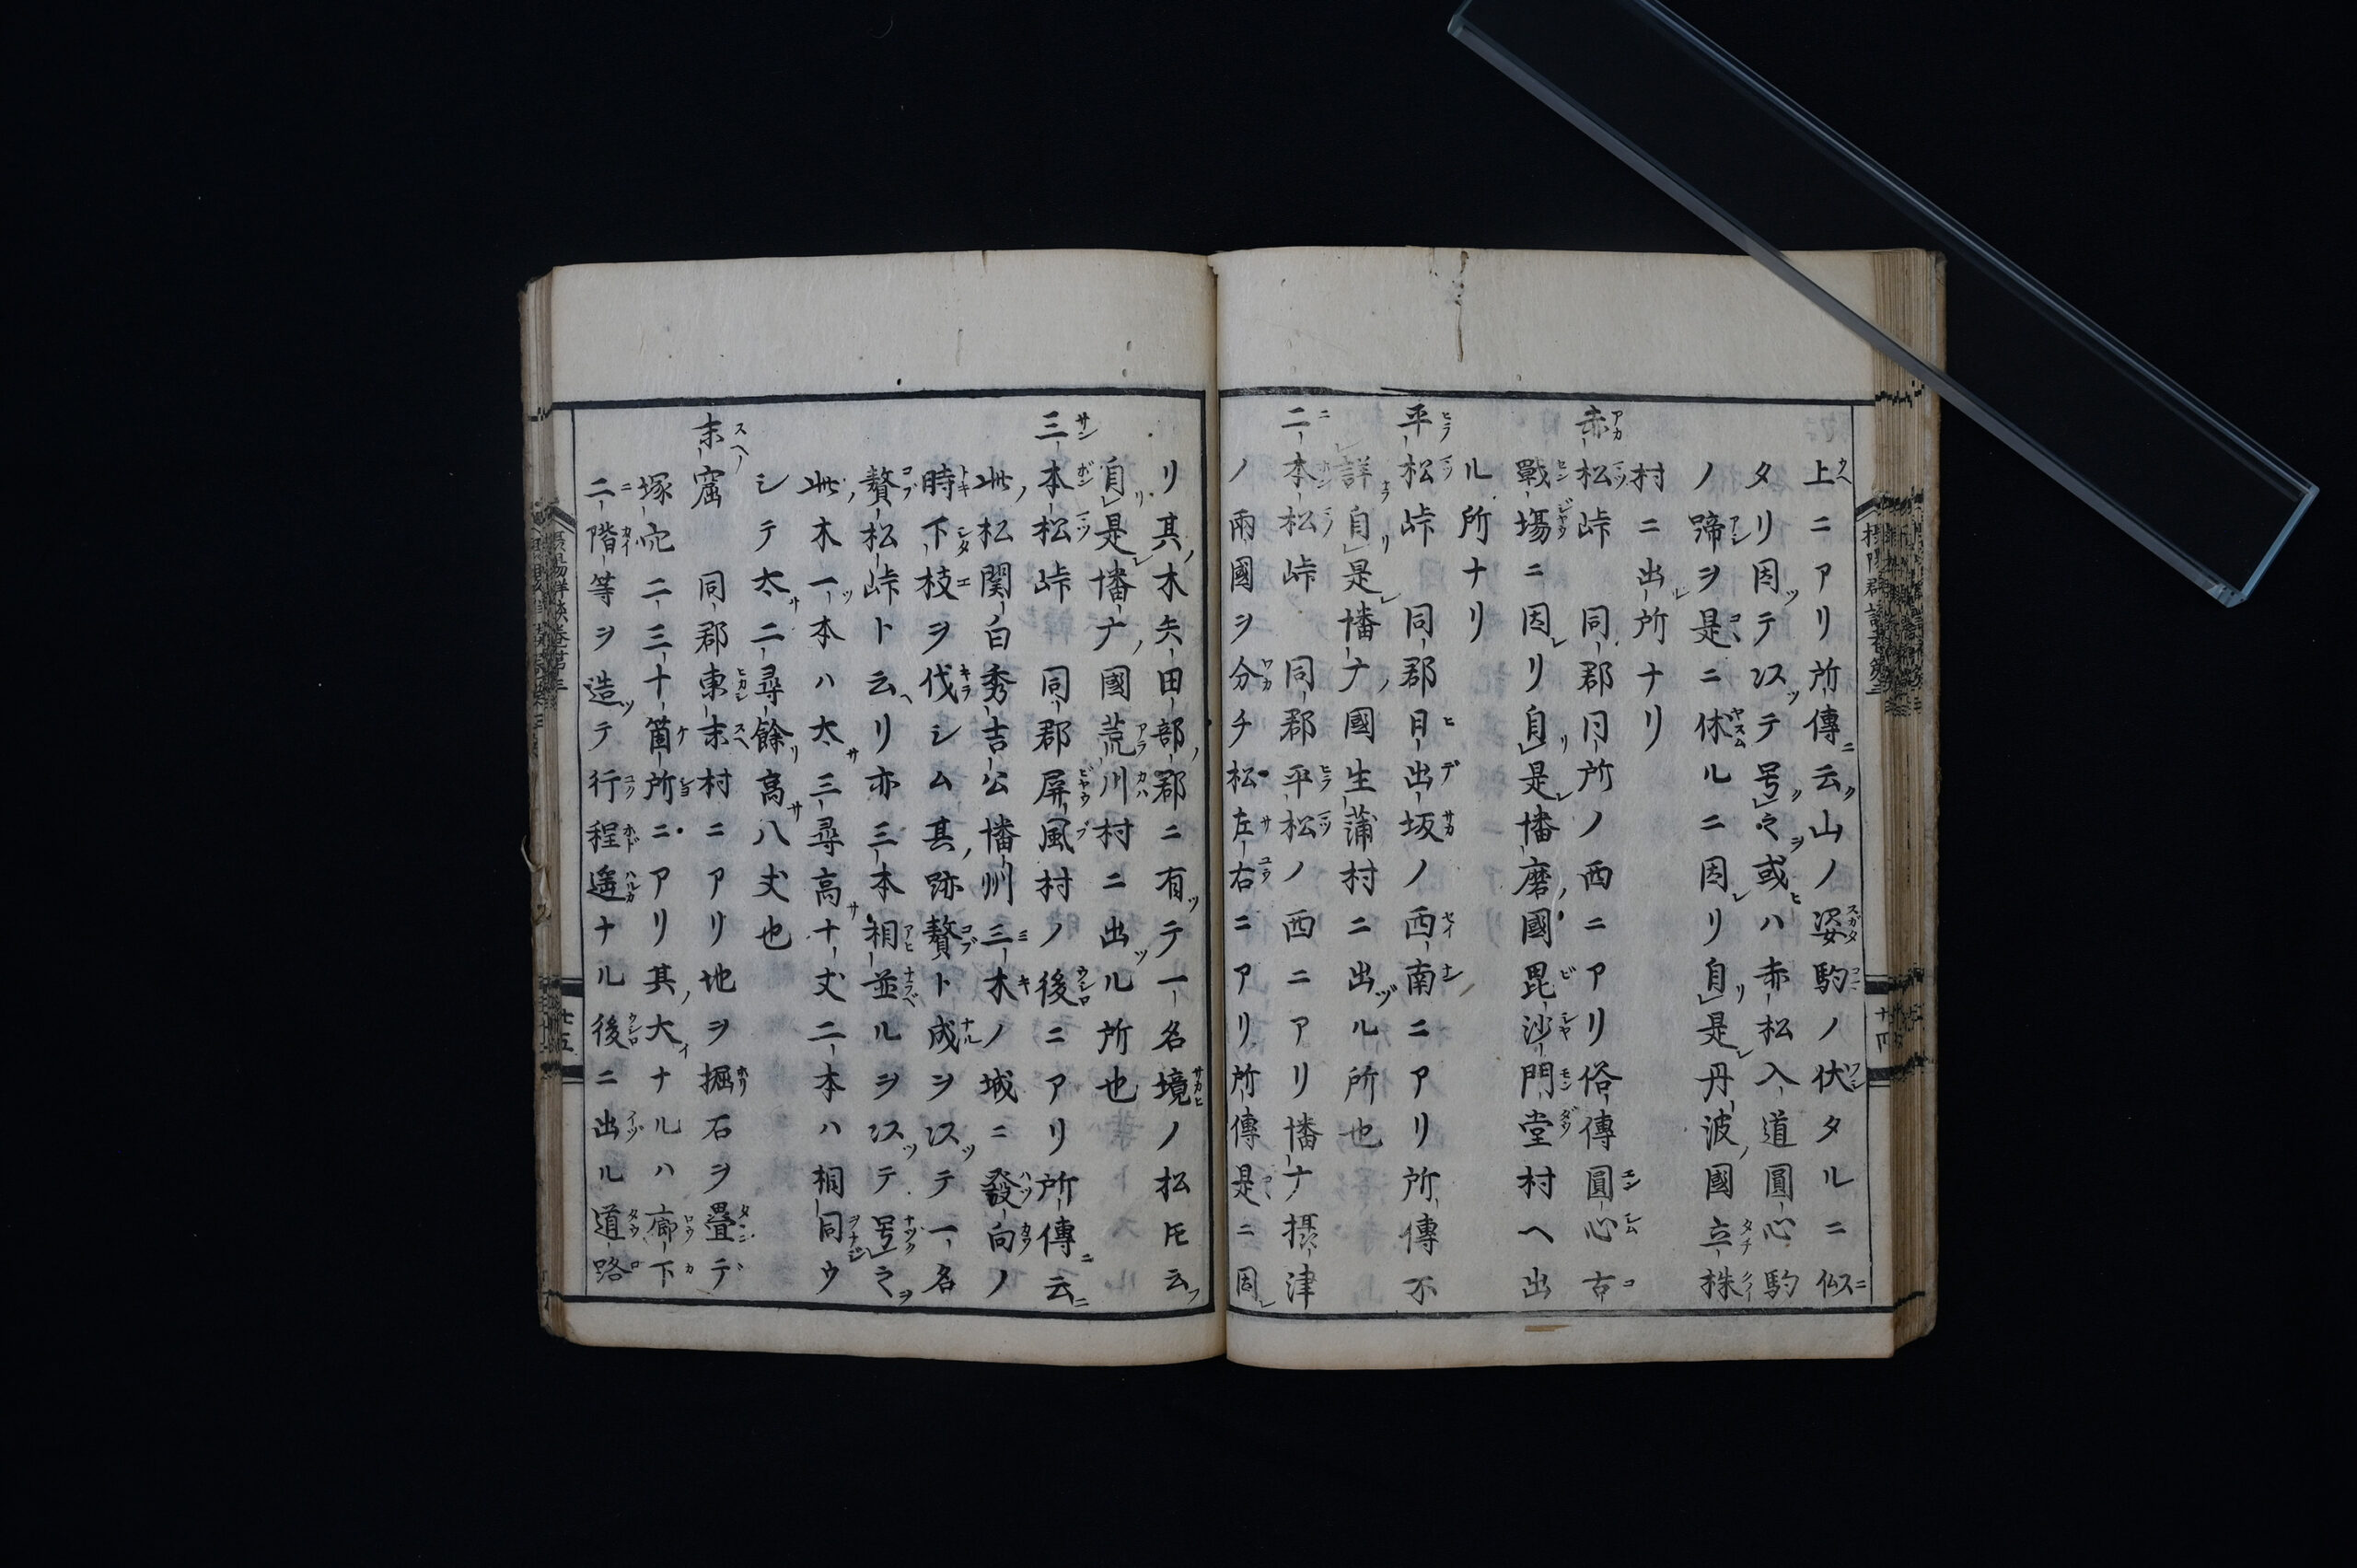 上ニアリ所傳云山ノ姿駒ノ伏タルニ似
タリ因テ以テ号之或ハ赤松入道圓心駒
ノ蹄ヲ是ニ休ルニ因リ自是丹波國立杭
村ニ出所ナリ
赤松峠 同郡同所ノ西ニアリ俗傳圓心古
戰塲ニ因リ自是幡磨國毘沙門堂村ヘ出
ル所ナリ
平松峠 同郡日出坂ノ西南ニアリ所傳不
詳自是幡ナ國生蒲村ニ出ル所也
二本松峠 同郡平松ノ西ニアリ幡ナ摂津
ノ兩國ヲ分チ松左右ニアリ所傳是ニ因
リ其木矢田部郡ニ有テ一名境ノ松𪜈云
自是幡ナ國荒川村ニ出ル所也
三本松峠 同郡屏風村ノ後ニアリ所傳云
此松関白秀吉公幡州三木ノ城ニ發向ノ
時下枝ヲ伐シム其跡贅ト成ヲ以テ一名
贅松峠ト云リ亦三本相並ルヲ以テ号之
此木一本ハ太三尋高十丈二本ハ相同ウ
シテ太二尋餘高八丈也
末窟 同郡東末村ニアリ地ヲ掘石ヲ畳テ
塚穴二三十箇所ニアリ其大ナルハ廊下
二階等ヲ造テ行程遥ナル後ニ出ル道路